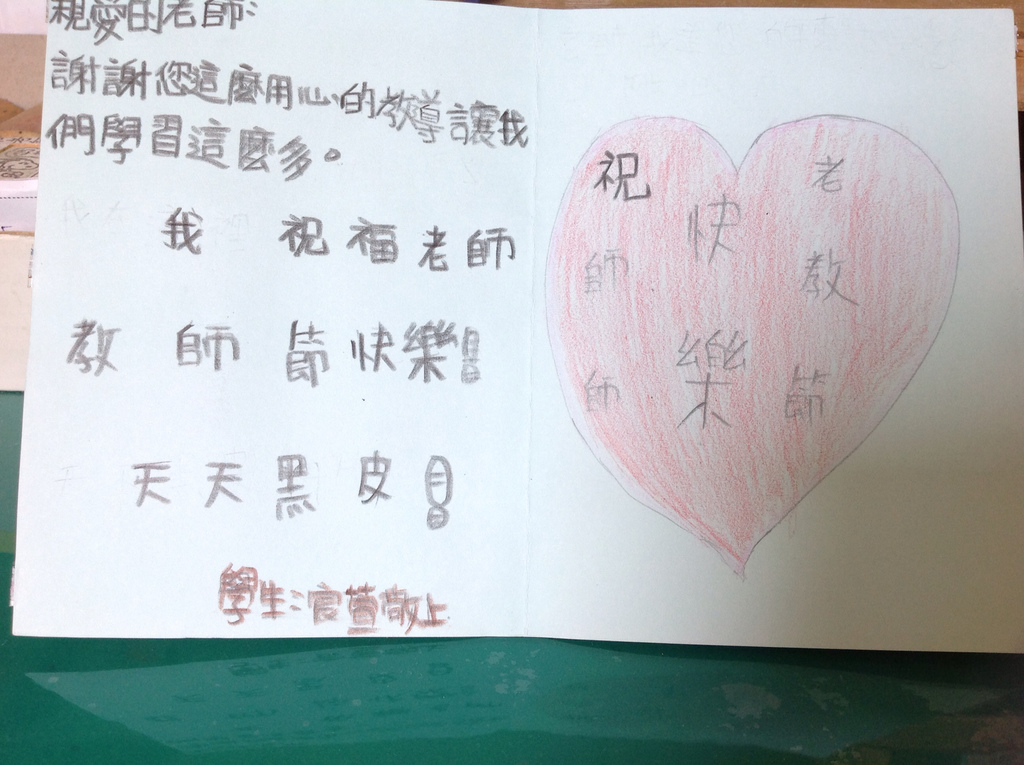 親愛的老師:
謝謝您這麼用心的教導讓我
們學習這麼多。
我祝福老師
教師節快樂!
天天黑皮!
學生:宸萱敬上
祝 快 老
師 教
師 樂 節